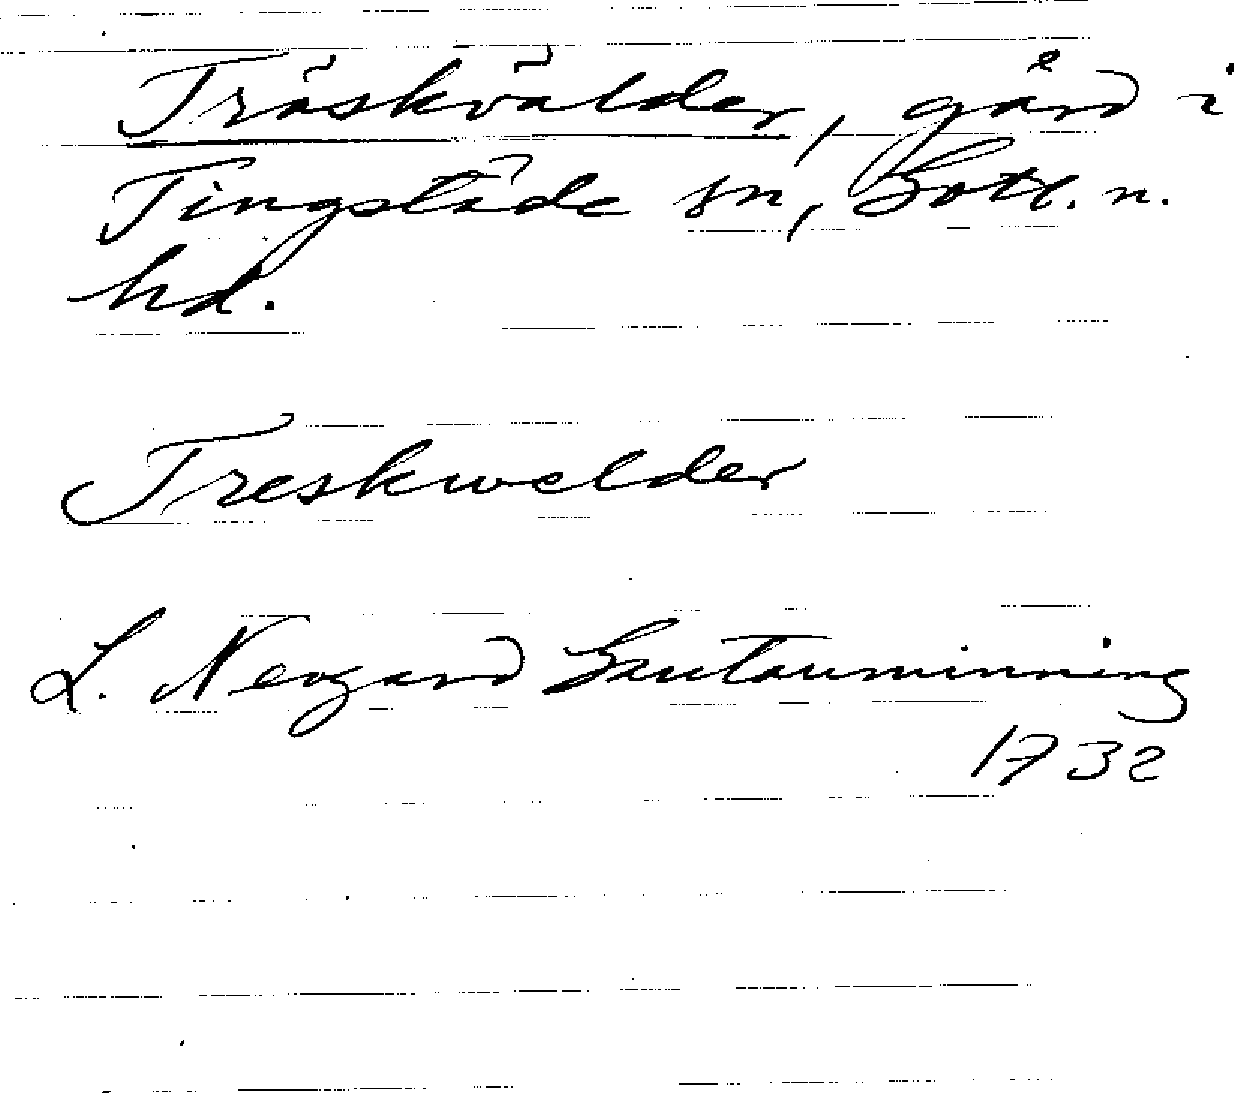 Träskvälder, gård i
Tingstäde sn, Gotl. n.
hd.
Treskwelder
L. Neogard Gautauminning
1732